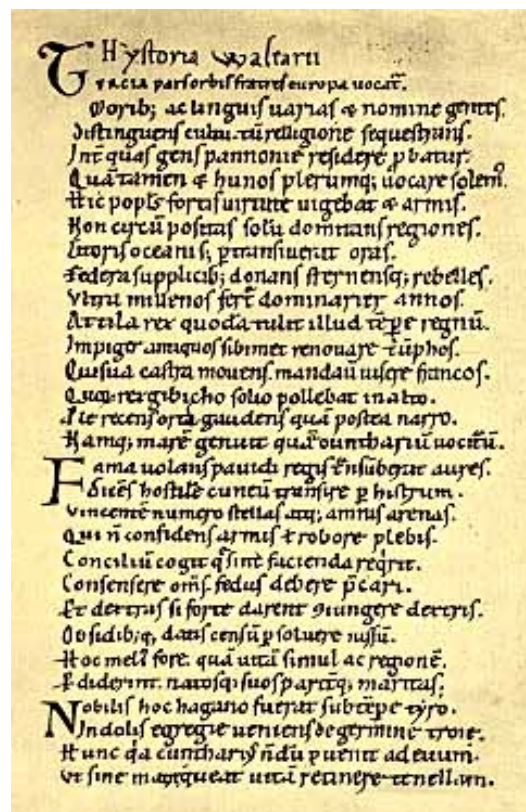 Hystoria Waltarii
Tercia pars orbis fratres europa uocat̄.
Morib; ac linguis uarias & nomine gentes.
Distinguens cultu. tū relligione sequestrans.
Int̄ quas gens pannonie residere ꝑbatur.
Quā tamen & hunos plerumq; uocare solem᷒.
Hic popl̄s fortis uirtute uigebat & armis.
Non circū positas solū domitans regiones.
Litoris oceani s; ꝑtransiuerat oras.
Federa supplicib; donans sternensq; rebelles.
Vltra millenos fert̄ dominarier annos.
Attila rex quodā tulit illud tēpe regnū.
Impiger antiquos sibimet renouare t̄ūphos.
Qui sua castra mouens mandauit uisere francos.
Quoꝝ rex gibicho solio pollebat in alto.
Ꝓle recens orta gaudens quā postea narro.
Namq; marē genuit quē gunthariū uocitau̅.
Fama uolans pauidi regis t̄nsuberat aures.
Dicēs hostilē cuneū transire ꝑ histrum.
Vincentē numero stellas atq; amnis arenas.
Qui n̄ confidens armis ł robore plebis.
Conciliū cogit q̄ sint facienda reqͥrit.
Consensere oms̄. fedus debere p̄cari.
Et dextras si forte darent ꝯiungere dextris.
Obsidib;q; datis censū ꝑsoluere iussū.
Hoc meli᷒ fore. quā uitā simul ac regionē.
Ꝑdiderint. natosq; suos paritq; maritas.
Nobilis hoc hagano fuerat sub tēpe tyro.
Indolis egregie ueniens de germine troie.
Hunc qͥa cunthari᷒ n̄dū ꝑuenit ad euum.
Vt sine matre queat uitā retinere tenellam.